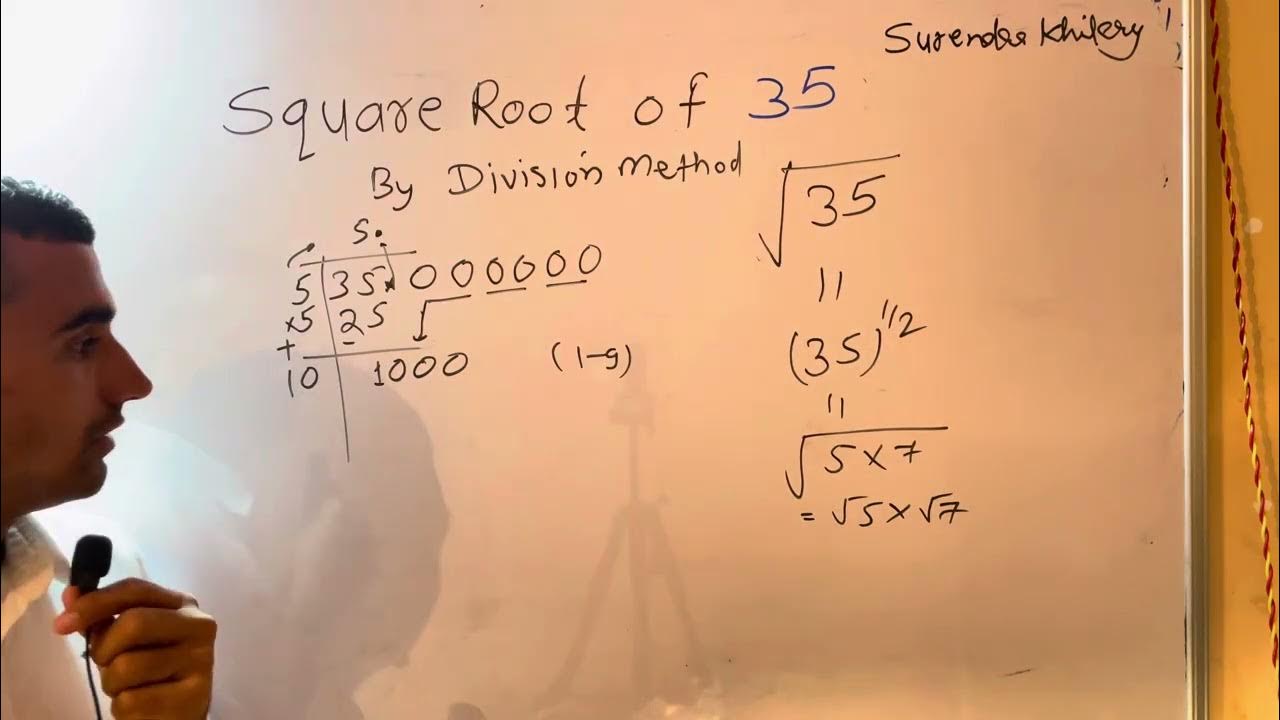 Surendra Khilery
Square Root of 35
By Division Method
5.
5 35.000000
×5 25
+
10 1000 (1-9)
√35
=
(35)^1/2
=
√5×7
= √5×√7